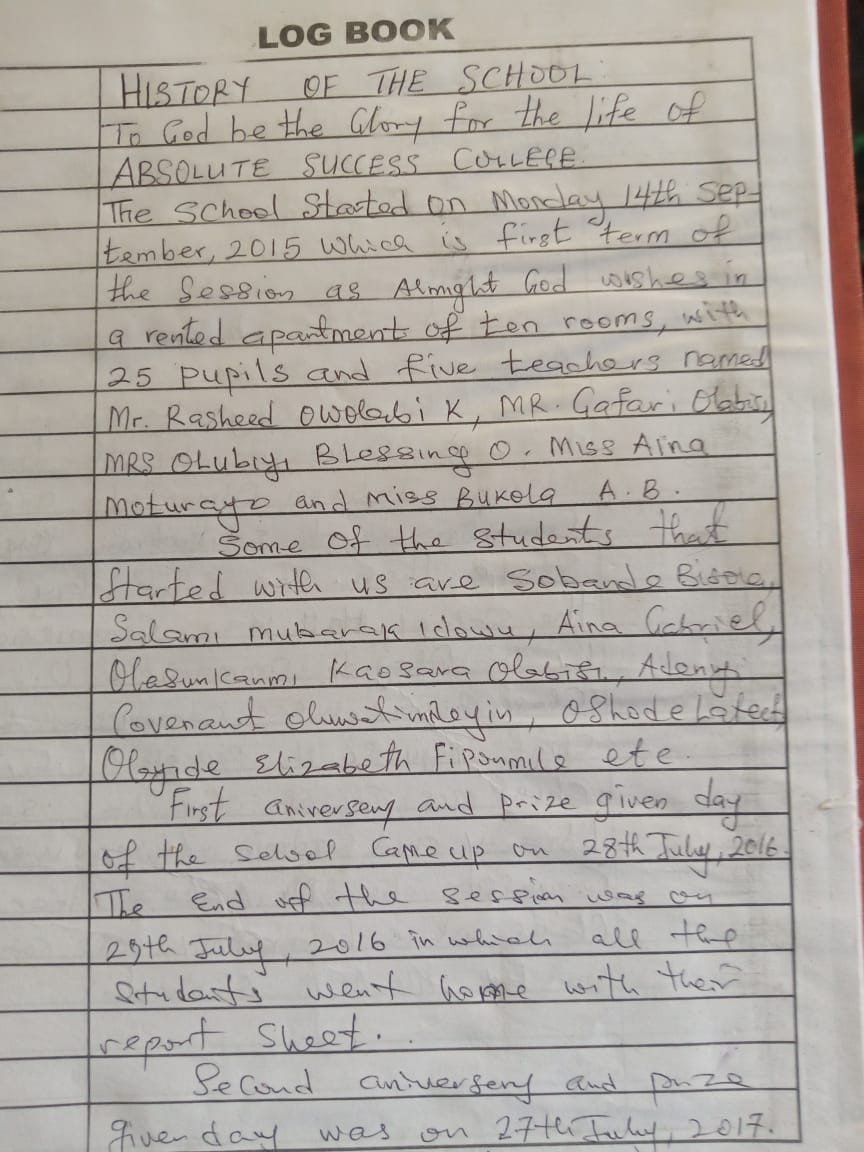 LOG BOOK
HISTORY OF THE SCHOOL
To God be the Glory for the life of
ABSOLUTE SUCCESS COLLEGE.
The School Started on Monday 14th Sep-
tember, 2015 which is first term of
the Session as Almight God wishes in
a rented apartment of ten rooms, with
25 pupils and five teachers named
Mr. Rasheed Owolabi K, MR. Gafari Olabisi,
MRS OLubiyi Blessing O. Miss Aina
Moturayo and miss Bukola A.B.
Some of the students that
Started with us are Sobande
Salami mubarak Idowu, Aina Gabriel,
Olasunkanmi Kaosara Olabisi, Adenyi
Covenant Oluwatimileyin, Oshode Lateef
Olayide Elizabeth etc.
First aniversery and prize given day
of the School Came up on 28th July, 2016.
The End of the session was on
29th July, 2016 in which all the
Students went home with their
report Sheet.
Second aniversery and prize
given day was on 27th July, 2017.